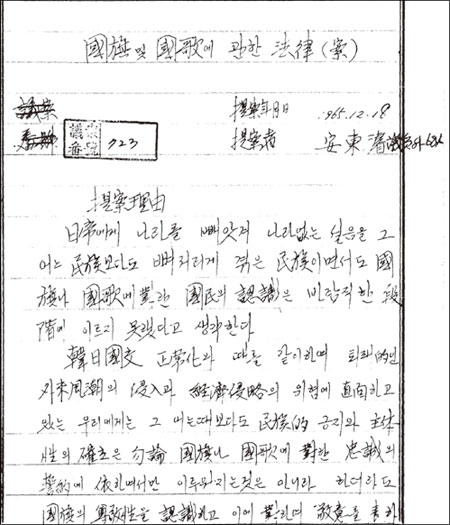 國旗 및 國歌에 관한 法律(案)
議案 提案年月日 1965.12.18
番號 議案番號 723 提案者 安東濬議員外
提案理由
日帝에게 나라를 빼앗겨 나라없는 설음을 그
어느 民族보다도 뼈저리게 겪은 民族이면서도 國
旗나 國歌에 對한 國民의 認識은 바람직한 段
階에 이르지 못했다고 생각한다
韓日國交 正常化와 때를 같이하여 퇴폐적인
外來風潮의 侵入과 經濟侵略의 위협에 直面하고
있는 우리에게는 그 어느때보다도 民族的 긍지와 主体
性의 確立은 勿論 國旗나 國歌에 對한 忠誠의
誓約에 依하여서만 이루워지는것은 아니라 하더라도
國旗의 尊嚴性을 認識하고 이에 對하여 敬意를 表하